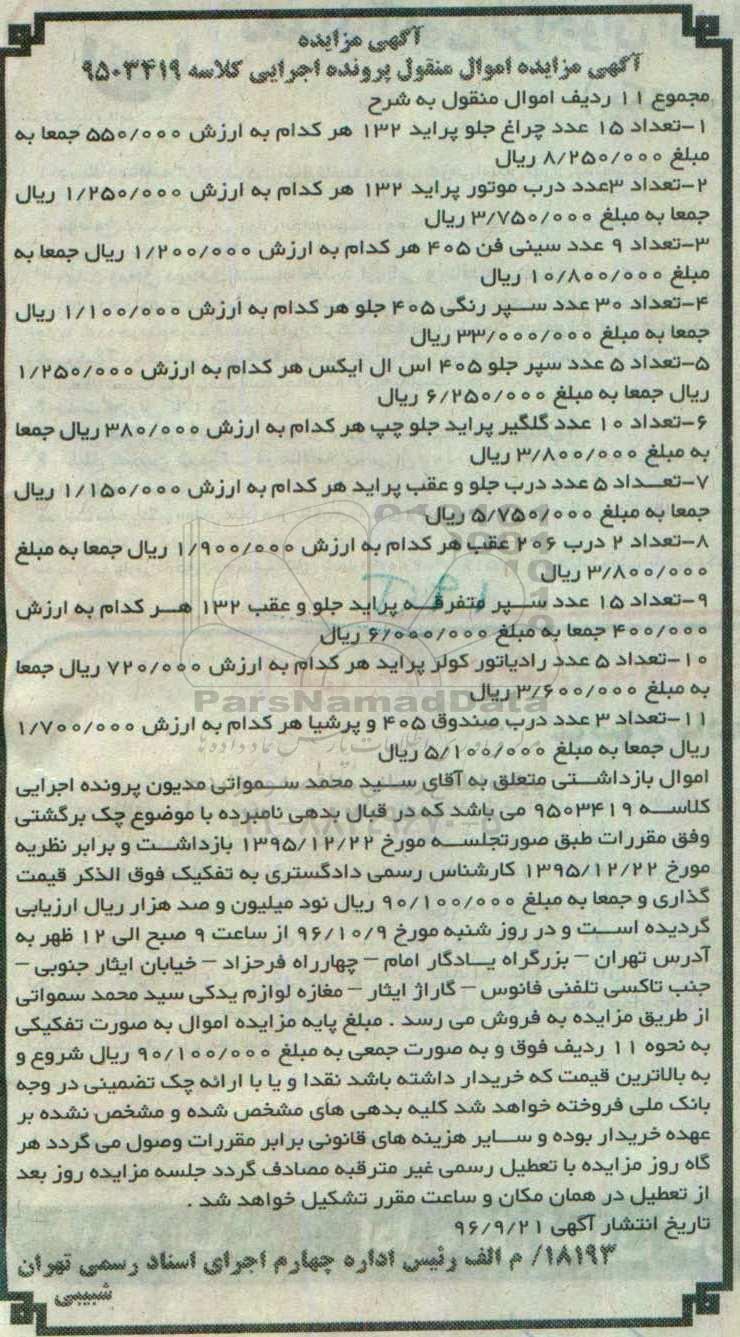 آگهی مزایده
آگهی مزایده اموال منقول پرونده اجرایی کلاسه ۹۵۰۳۴۱۹
مجموع ۱۱ ردیف اموال منقول به شرح
۱-تعداد ۱۵ عدد چراغ جلو پراید ۱۳۲ هر کدام به ارزش ۵۵۰/۰۰۰ جمعا به
مبلغ ۸/۲۵۰/۰۰۰ ریال
۲-تعداد ۳عدد درب موتور پراید ۱۳۲ هر کدام به ارزش ۱/۲۵۰/۰۰۰ ریال
جمعا به مبلغ ۳/۷۵۰/۰۰۰ ریال
۳-تعداد ۹ عدد سینی فن ۴۰۵ هر کدام به ارزش ۱/۲۰۰/۰۰۰ ریال جمعا به
مبلغ ۱۰/۸۰۰/۰۰۰ ریال
۴-تعداد ۳۰ عدد سپر رنگی ۴۰۵ جلو هر کدام به ارزش ۱/۱۰۰/۰۰۰ ریال
جمعا به مبلغ ۳۳/۰۰۰/۰۰۰ ریال
۵-تعداد ۵ عدد سپر جلو ۴۰۵ اس ال ایکس هر کدام به ارزش ۱/۲۵۰/۰۰۰
ریال جمعا به مبلغ ۶/۲۵۰/۰۰۰ ریال
۶-تعداد ۱۰ عدد گلگیر پراید جلو چپ هر کدام به ارزش ۳۸۰/۰۰۰ ریال جمعا
به مبلغ ۳/۸۰۰/۰۰۰ ریال
۷-تعداد ۵ عدد درب جلو و عقب پراید هر کدام به ارزش ۱/۱۵۰/۰۰۰ ریال
جمعا به مبلغ ۵/۷۵۰/۰۰۰ ریال
۸-تعداد ۲ درب ۲۰۶ عقب هر کدام به ارزش ۱/۹۰۰/۰۰۰ ریال جمعا به مبلغ
۳/۸۰۰/۰۰۰ ریال
۹-تعداد ۱۵ عدد سپر متفرقه پراید جلو و عقب ۱۳۲ هر کدام به ارزش
۴۰۰/۰۰۰ جمعا به مبلغ ۶/۰۰۰/۰۰۰ ریال
۱۰-تعداد ۵ عدد رادیاتور کولر پراید هر کدام به ارزش ۷۲۰/۰۰۰ ریال جمعا
به مبلغ ۳/۶۰۰/۰۰۰ ریال
ParsNamadData
۱۱-تعداد ۳ عدد درب صندوق ۴۰۵ و پرشیا هر کدام به ارزش ۱/۷۰۰/۰۰۰
ریال جمعا به مبلغ ۵/۱۰۰/۰۰۰ ریال
اموال بازداشتی متعلق به آقای سید محمد سمواتی مدیون پرونده اجرایی
کلاسه ۹۵۰۳۴۱۹ می باشد که در قبال بدهی نامبرده با موضوع چک برگشتی
وفق مقررات طبق صورتجلسه مورخ ۱۳۹۵/۱۲/۲۲ بازداشت و برابر نظریه
مورخ ۱۳۹۵/۱۲/۲۲ کارشناس رسمی دادگستری به تفکیک فوق الذکر قیمت
گذاری و جمعا به مبلغ ۹۰/۱۰۰/۰۰۰ ریال نود میلیون و صد هزار ریال ارزیابی
گردیده است و در روز شنبه مورخ ۹۶/۱۰/۹ از ساعت ۹ صبح الی ۱۲ ظهر به
آدرس تهران – بزرگراه یادگار امام – چهارراه فرحزاد – خیابان ایثار جنوبی –
جنب تاکسی تلفنی فانوس – گاراژ ایثار – مغازه لوازم یدکی سید محمد سمواتی
از طریق مزایده به فروش می رسد . مبلغ پایه مزایده اموال به صورت تفکیکی
به نحوه ۱۱ ردیف فوق و به صورت جمعی به مبلغ ۹۰/۱۰۰/۰۰۰ ریال شروع و
به بالاترین قیمت که خریدار داشته باشد نقدا و یا با ارائه چک تضمینی در وجه
بانک ملی فروخته خواهد شد کلیه بدهی های مشخص شده و مشخص نشده بر
عهده خریدار بوده و سایر هزینه های قانونی برابر مقررات وصول می گردد هر
گاه روز مزایده با تعطیل رسمی غیر مترقبه مصادف گردد جلسه مزایده روز بعد
از تعطیل در همان مکان و ساعت مقرر تشکیل خواهد شد .
تاریخ انتشار آگهی ۹۶/۹/۲۱
۱۸۱۹۳/ م الف رئیس اداره چهارم اجرای اسناد رسمی تهران
شبیبی